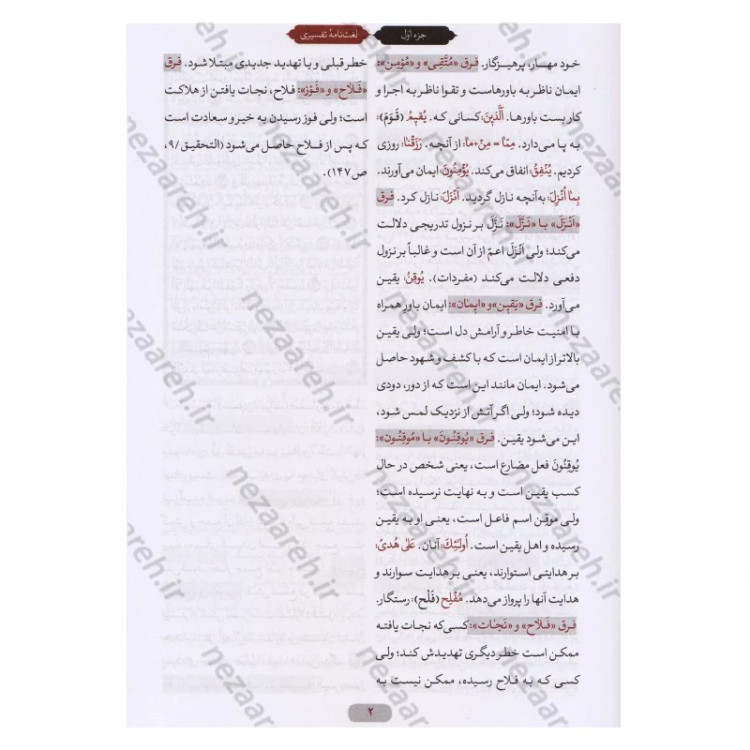 جزء اوّل
لغت‌نامهٔ تفسیری
خود مهار، پرهیزگار. فرق «مُتَّقِی» و «مُؤمِن»:
ایمان ناظر به باورهاست و تقوا ناظر به اجرا و
کاربست باورها. اَلَّذینَ: کسانی که. یُقیمُ (قَوَمَ):
به پا می‌دارد. مِمّا = مِنْ+ما: از آنچه. رَزَقْنا: روزی
کردیم. یُنْفِقُ: انفاق می‌کند. یُؤْمِنُونَ: ایمان می‌آورند.
بِما اُنْزِلَ: به‌آنچه نازل گردید. اَنْزَلَ: نازل کرد. فرق
«اَنْزَلَ» با «نَزَّلَ»: نَزَّلَ بر نزول تدریجی دلالت
می‌کند؛ ولی اَنْزَلَ اعمّ از آن است و غالباً بر نزول
دفعی دلالت می‌کند (مفردات). یُوقِنُ: یقین
می‌آورد. فرق «یَقین» و «ایمان»: ایمان باور همراه
با امنیت خاطر و آرامش دل است؛ ولی یقین
بالاتر از ایمان است که با کشف و شهود حاصل
می‌شود. ایمان مانند این است که از دور، دودی
دیده شود؛ ولی اگر آتش از نزدیک لمس شود،
این می‌شود یقین. فرق «یُوقِنُونَ» با «مُوقِنُون»:
یُوقِنُونَ فعل مضارع است، یعنی شخص در حال
کسب یقین است و به نهایت نرسیده است؛
ولی موقن اسم فاعل است، یعنی او به یقین
رسیده و اهل یقین است. اُولٰئِكَ: آنان. عَلىٰ هُدىً:
بر هدایتی استوارند، یعنی بر هدایت سوارند و
هدایت آنها را پرواز می‌دهد. مُفْلِح (فَلَحَ): رستگار.
فرق «فَلاح» و «نَجات»: کسی‌که نجات یافته
ممکن است خطر دیگری تهدیدش کند؛ ولی
کسی که به فلاح رسیده، ممکن نیست به
خطر قبلی و یا تهدید جدیدی مبتلا شود. فرق
«فَلاح» و «فَوْز»: فلاح، نجات یافتن از هلاکت
است؛ ولی فوز رسیدن به خیر و سعادت است
که پس از فلاح حاصل می‌شود (التحقیق/۹،
ص۱۴۷).
۲
nezaareh.ir
nezaareh.ir
nezaareh.ir
nezaareh.ir
nezaareh.ir
nezaareh.ir
nezaareh.ir
nezaareh.ir
nezaareh.ir